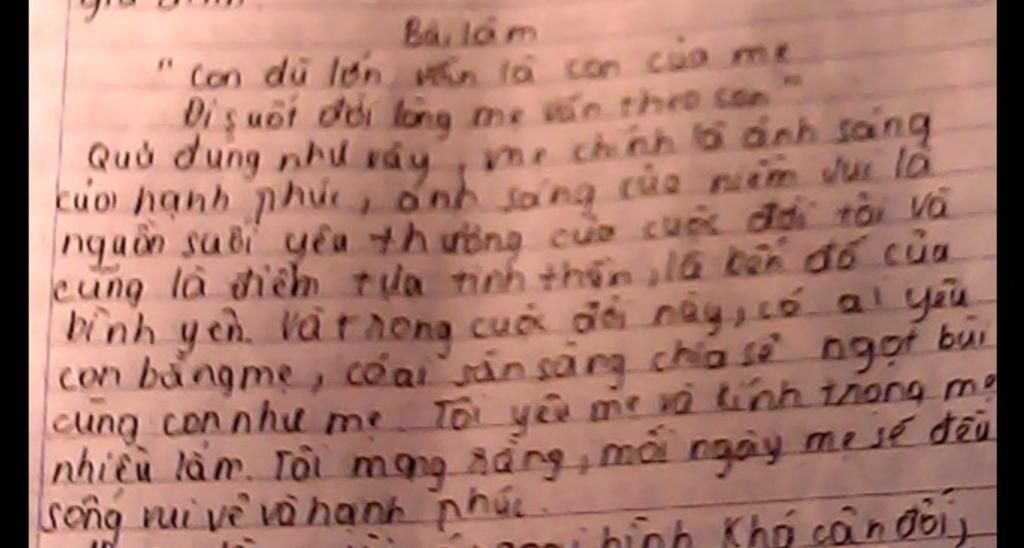 Bài làm
" Con dù lớn vẫn là con của mẹ
Đi suốt đời lòng mẹ vẫn theo con "
Quả dụng như vậy, mẹ chính là ánh sáng
của hạnh phúc, ánh sáng của niềm vui là
nguồn suối yêu thương của cuộc đời tôi và
cũng là điểm tựa tinh thần, là bến đỗ của
bình yên. Và trong cuộc đời này, có ai yêu
con bằng mẹ, có ai sẵn sàng chia sẻ ngọt bùi
cùng con như mẹ. Tôi yêu mẹ và kính trọng mẹ
nhiều lắm. Tôi mong rằng, mỗi ngày mẹ sẽ đều
sống vui vẻ và hạnh phúc.
hình Khá cân đối,